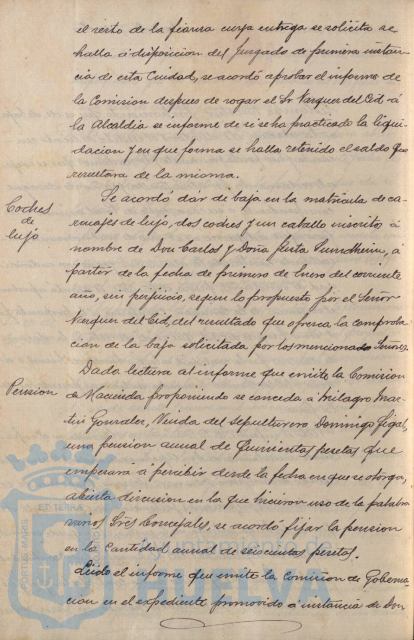 el resto de la fianza cuya entrega se solicita se
halla á disposicion del Juzgado de primera instan
cia de esta Ciudad, se acordó aprobar el informe de
la Comision despues de rogar el Sr Vazquez del Cid á
la Alcaldia se informe de si se ha practicado la liqui
dacion y en que forma se halla retenido el saldo que
resultara de la misma.
Coches
de
lujo
Se acordó dar de baja en la matrícula de ca-
rruajes de lujo, dos coches y un caballo inscritos á
nombre de Don Carlos y Doña Sundheim, á
partir de la fecha de primero de Enero del corriente
año, sin perjuicio, segun lo propuesto por el Señor
Vazquez del Cid, del resultado que ofrezca la comproba
cion de la baja solicitada por los mencionados Señores.
Pension
Dada lectura al informe que emite la Comision
de Hacienda proponiendo se conceda á Milagro Mar
tin Gonzalez, Viuda del sepulturero Domingo Vigal,
una pension anual de Quinientas pesetas que
empezará á percibir desde la fecha en que se otorga,
abierta discusion en la que hicieron uso de la palabra
varios Sres Concejales, se acordó fijar la pension
en la cantidad anual de seiscientas pesetas.
Leido el informe que emite la Comision de Goberna
cion en el expediente promovido á instancia de Don
PORTUS MARIS ET TERRÆ
Ayuntamiento de
HUELVA